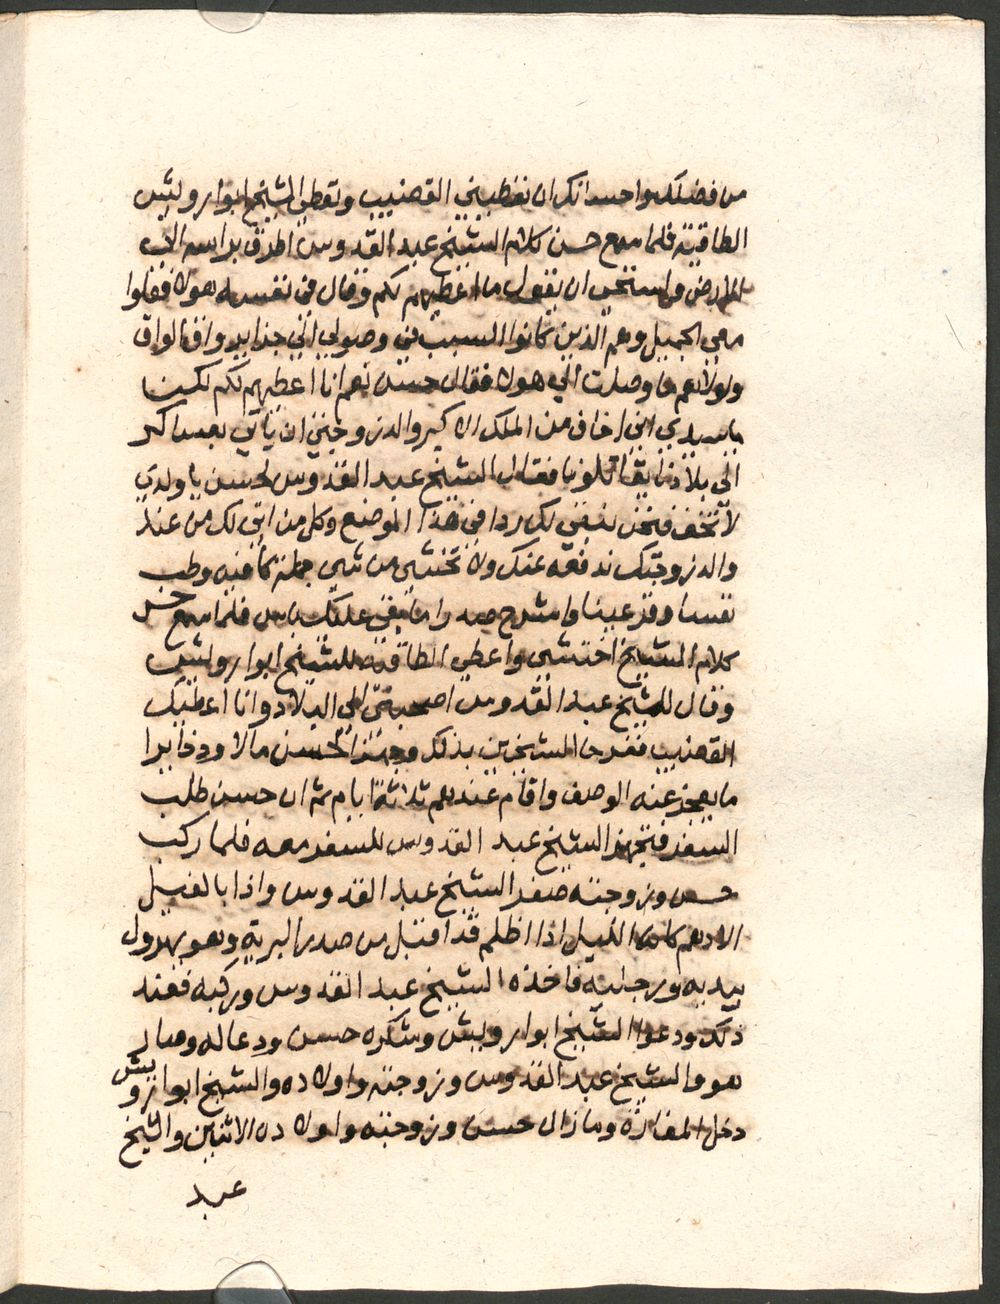 من فضلك واحسانك ان تعطيني القضيب وتعطي الشيخ ابوا رويش
الطاقيه فلما سمع حسن كلام الشيخ عبد القدوس اطرق براسه الى
الارض واستحى ان يقول ما اعطيهم لكم وقال في نفسه هولا فعلوا
معي الجميل وهم الذين كانوا السبب في وصولي الي جزاير واق الواق
ولولاهم ما وصلت الي هولا فقال حسن نعم انا اعطيهم لكم لكن
يا سيدي اني اخاف من الملك الاكبر والد زوجتي ان ياتي بعساكر
الي بلادنا يقاتلونا فقال الشيخ عبد القدوس لحسن يا ولدي
لا تخف فنحن نبقي لك ردا في هذا الموضع وكل من اتي لك من عند
والد زوجتك ندفعه عنك ولا تخشي من شي جملة كافيه وطب
نفسا وقر عينا وانشرح صدرا ما يبقي عليك باس فلما سمع حسن
كلام الشيخ اختشي واعطي الطاقيه للشيخ ابوا رويش
وقال للشيخ عبد القدوس اصحبني الي البلاد وانا اعطيك
القضيب ففرحا الشيخين بذلك وجهزا لحسن مالا وذخايرا
ما يعجز عنه الوصف واقام عندهم ثلاثة ايام ثم ان حسن طلب
السفر فتجهز الشيخ عبد القدوس للسفر معه فلما ركب
حسن وزوجته صفر الشيخ عبد القدوس واذا بالفيل
الادهم كانه الليل اذا اظلم قد اقبل من صدر البرية وهو يهرول
بيديه ورجليه فاخذه الشيخ عبد القدوس وركبه فعند
ذلك ودعوا الشيخ ابوا رويش وشكره حسن ودعا له وسار
هو والشيخ عبد القدوس وزوجته واولاده والشيخ ابوا رويش
دخل المغارة وما زال حسن وزوجته واولاده الاثنين والشيخ
عبد